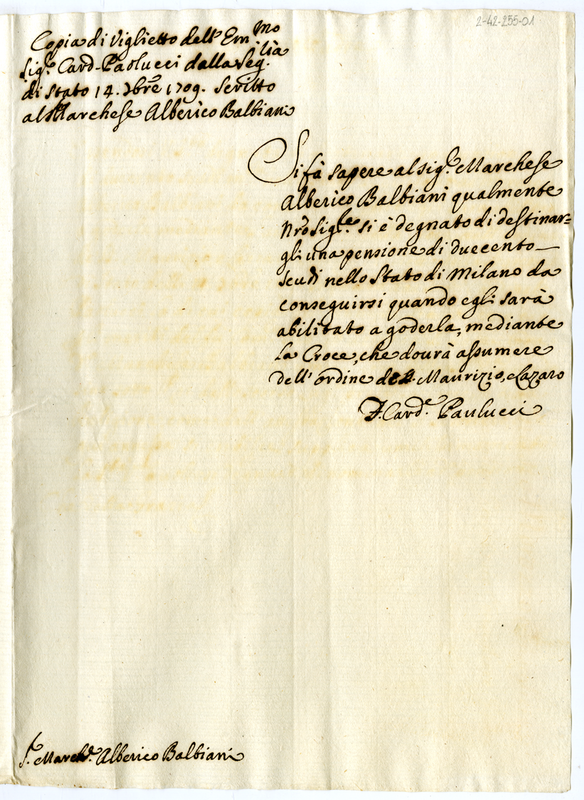 2-42-255-01
Copia di Viglietto dell' Em.mo
Sig.r Card. Paolucci dalla Seg.ria
di Stato 14. Xbre 1709. Scritto
al Marchese Alberico Balbiani
Si fà sapere al Sig.r Marchese
Alberico Balbiani qualmente
Nrõ Sig.re si è degnato di destinar=
gli una pensione di duecento
scudi nello Stato di Milano da
conseguirsi quando egli sarà
abilitato a goderla, mediante
la Croce, che dourà assumere
dell' ordine de Maurizio, e Lazaro
F. Card.e Paulucci
S.r March.e Alberico Balbiani